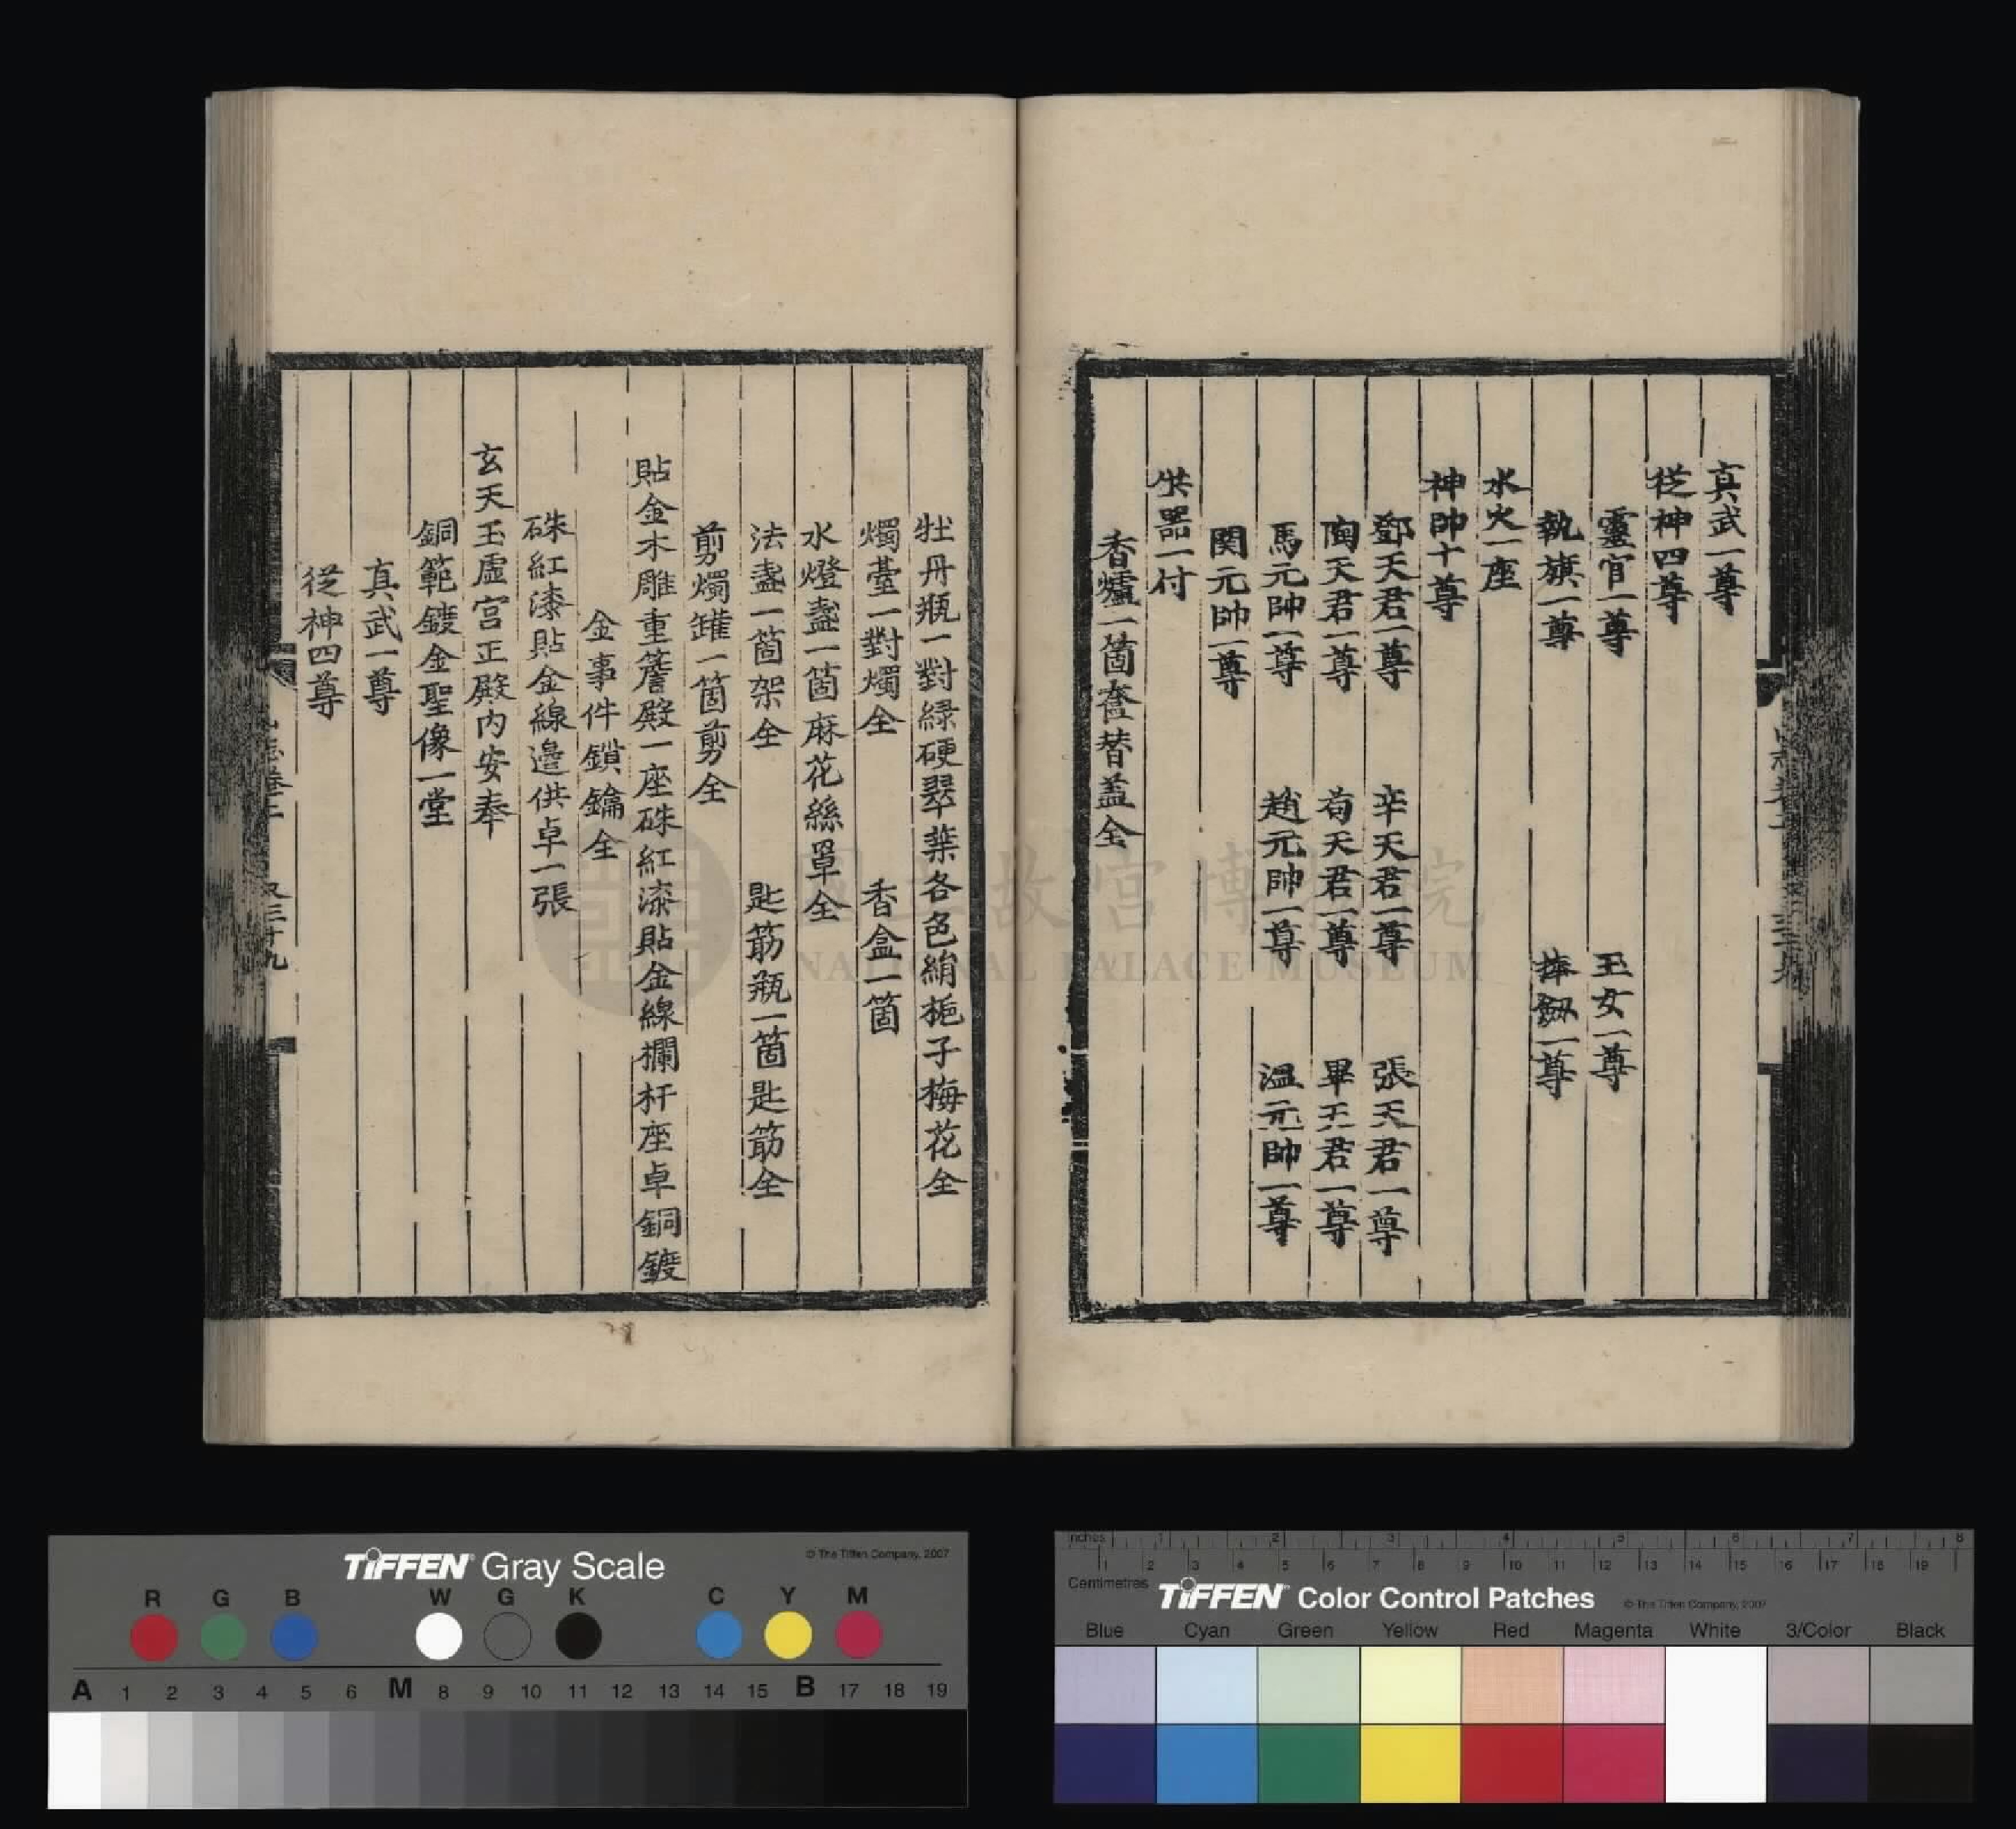 真武一尊
從神四尊
靈官一尊 玉女一尊
執旗一尊 捧劔一尊
水火一座
神帥十尊
鄧天君一尊 辛天君一尊 張天君一尊
陶天君一尊 苟天君一尊 畢天君一尊
馬元帥一尊 趙元帥一尊 溫元帥一尊
関元帥一尊
供器一付
香爐一箇奩替盖全
牡丹瓶一對緑硬翠葉各色絹梔子梅花全
燭臺一對燭全 香盒一箇
水燈盞一箇麻花絲罩全
法盞一箇架全 匙筯瓶一箇匙筯全
剪燭罐一箇剪全
貼金木雕重簷殿一座硃紅漆貼金線攔杆座卓銅鍍
金事件鎖鑰全
硃紅漆貼金線邊供卓一張
玄天玉虛宫正殿內安奉
銅範鍍金聖像一堂
真武一尊
從神四尊
三十九
國立故宮博物院
NATIONAL PALACE MUSEUM
TIFFEN Gray Scale
© The Tiffen Company, 2007
R G B W G K C Y M
A 1 2 3 4 5 6 M 8 9 10 11 12 13 14 15 B 17 18 19
inches 1 2 3 4 5 6 7 8
1 2 3 4 5 6 7 8 9 10 11 12 13 14 15 16 17 18 19
Centimetres
TIFFEN Color Control Patches
© The Tiffen Company, 2007
Blue Cyan Green Yellow Red Magenta White 3/Color Black